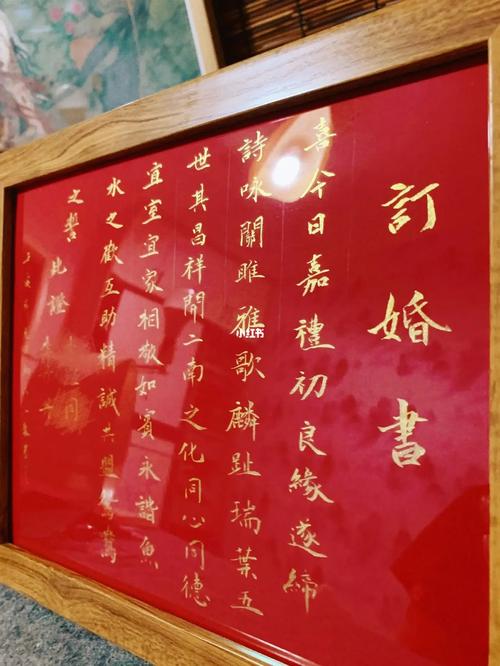 訂婚書
喜今日嘉禮初良緣遂締
詩咏關雎雅歌麟趾瑞葉五
世其昌祥開二南之化同心同德
宜室宜家相敬如賓永諧魚
水之歡互助精誠共盟鴛鴦
之誓
此證
小红书